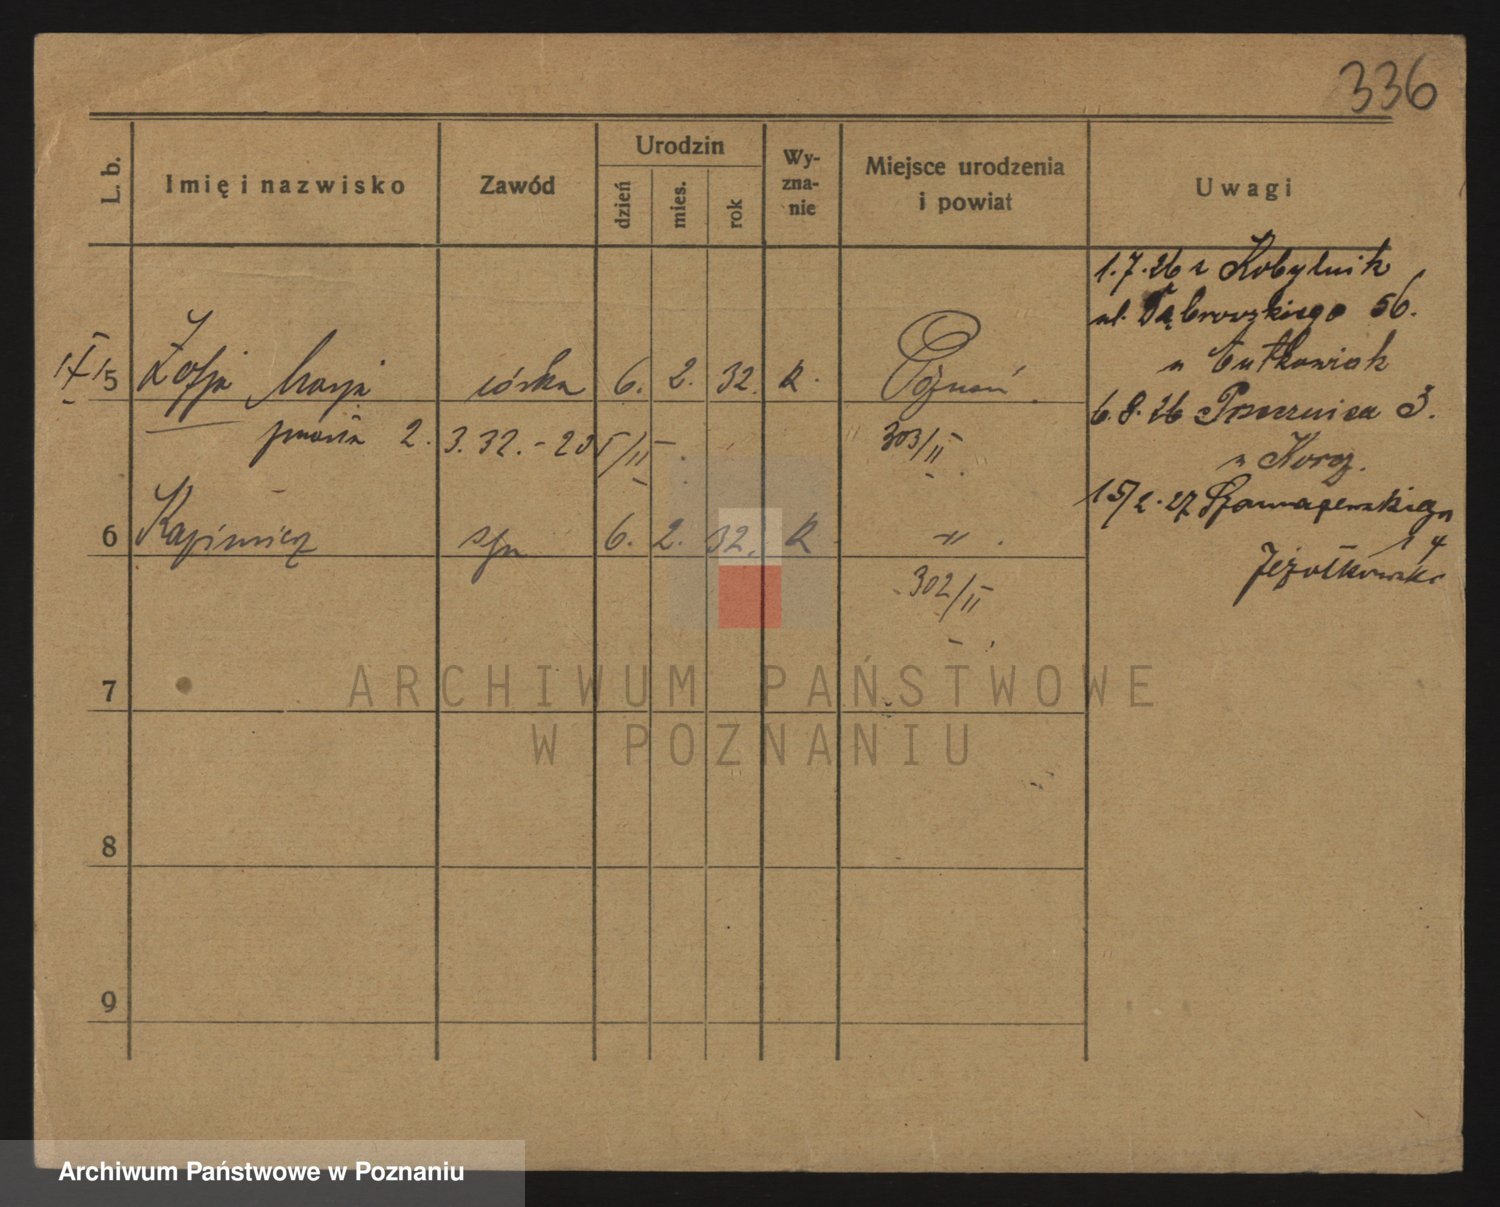 336
L. b.
Imię i nazwisko
Zawód
Urodzin
dzień
mies.
rok
Wy-
zna-
nie
Miejsce urodzenia
i powiat
Uwagi
5 Zofja Marja córka 6. 2. 32. R. Poznań.
zmarła 2. 3. 32. - 205/II
303/II
6 Kazimierz syn 6. 2. 32. R. -"-.
302/II
7
8
9
1.7.26 z Kobylnik
ul. Dąbrowskiego 56.
u Rutkowiak
6.8.26 Pszenna 3.
u Korcz.
15/2.27 Szamarzewskiego
14
ARCHIWUM PAŃSTWOWE
W POZNANIU
Archiwum Państwowe w Poznaniu